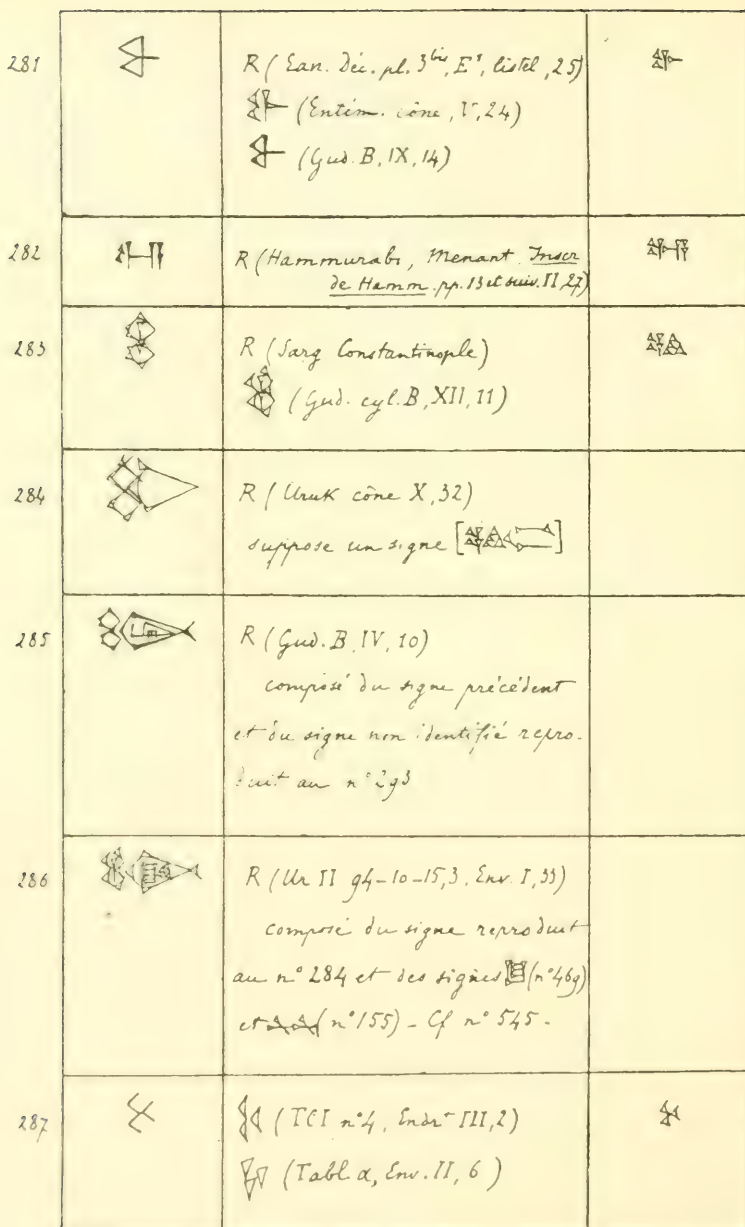 281 R (Ean. Déc. pl. 3bis, E¹, listel, 25)
(Entém. cône, V, 24)
(Gud. B, IX, 14)
282 R (Hammurabi, Menant Inscr
de Hamm. pp. 13 et suiv. II, 27)
283 R (Sarg Constantinople)
(Gud. cyl. B, XII, 11)
284 R (Uruk cône X, 32)
suppose un signe [ ]
285 R (Gud. B, IV, 10)
composé du signe précédent
et du signe non identifié repro-
duit au n° 293
286 R (Ur II 94-10-15, 3. Env. I, 33)
composé du signe reproduit
au n° 284 et des signes (n° 469)
et (n° 155) - Cf n° 545 -
287 (TCI n° 4, Endrt III, 2)
(Tabl. a, Env. II, 6)